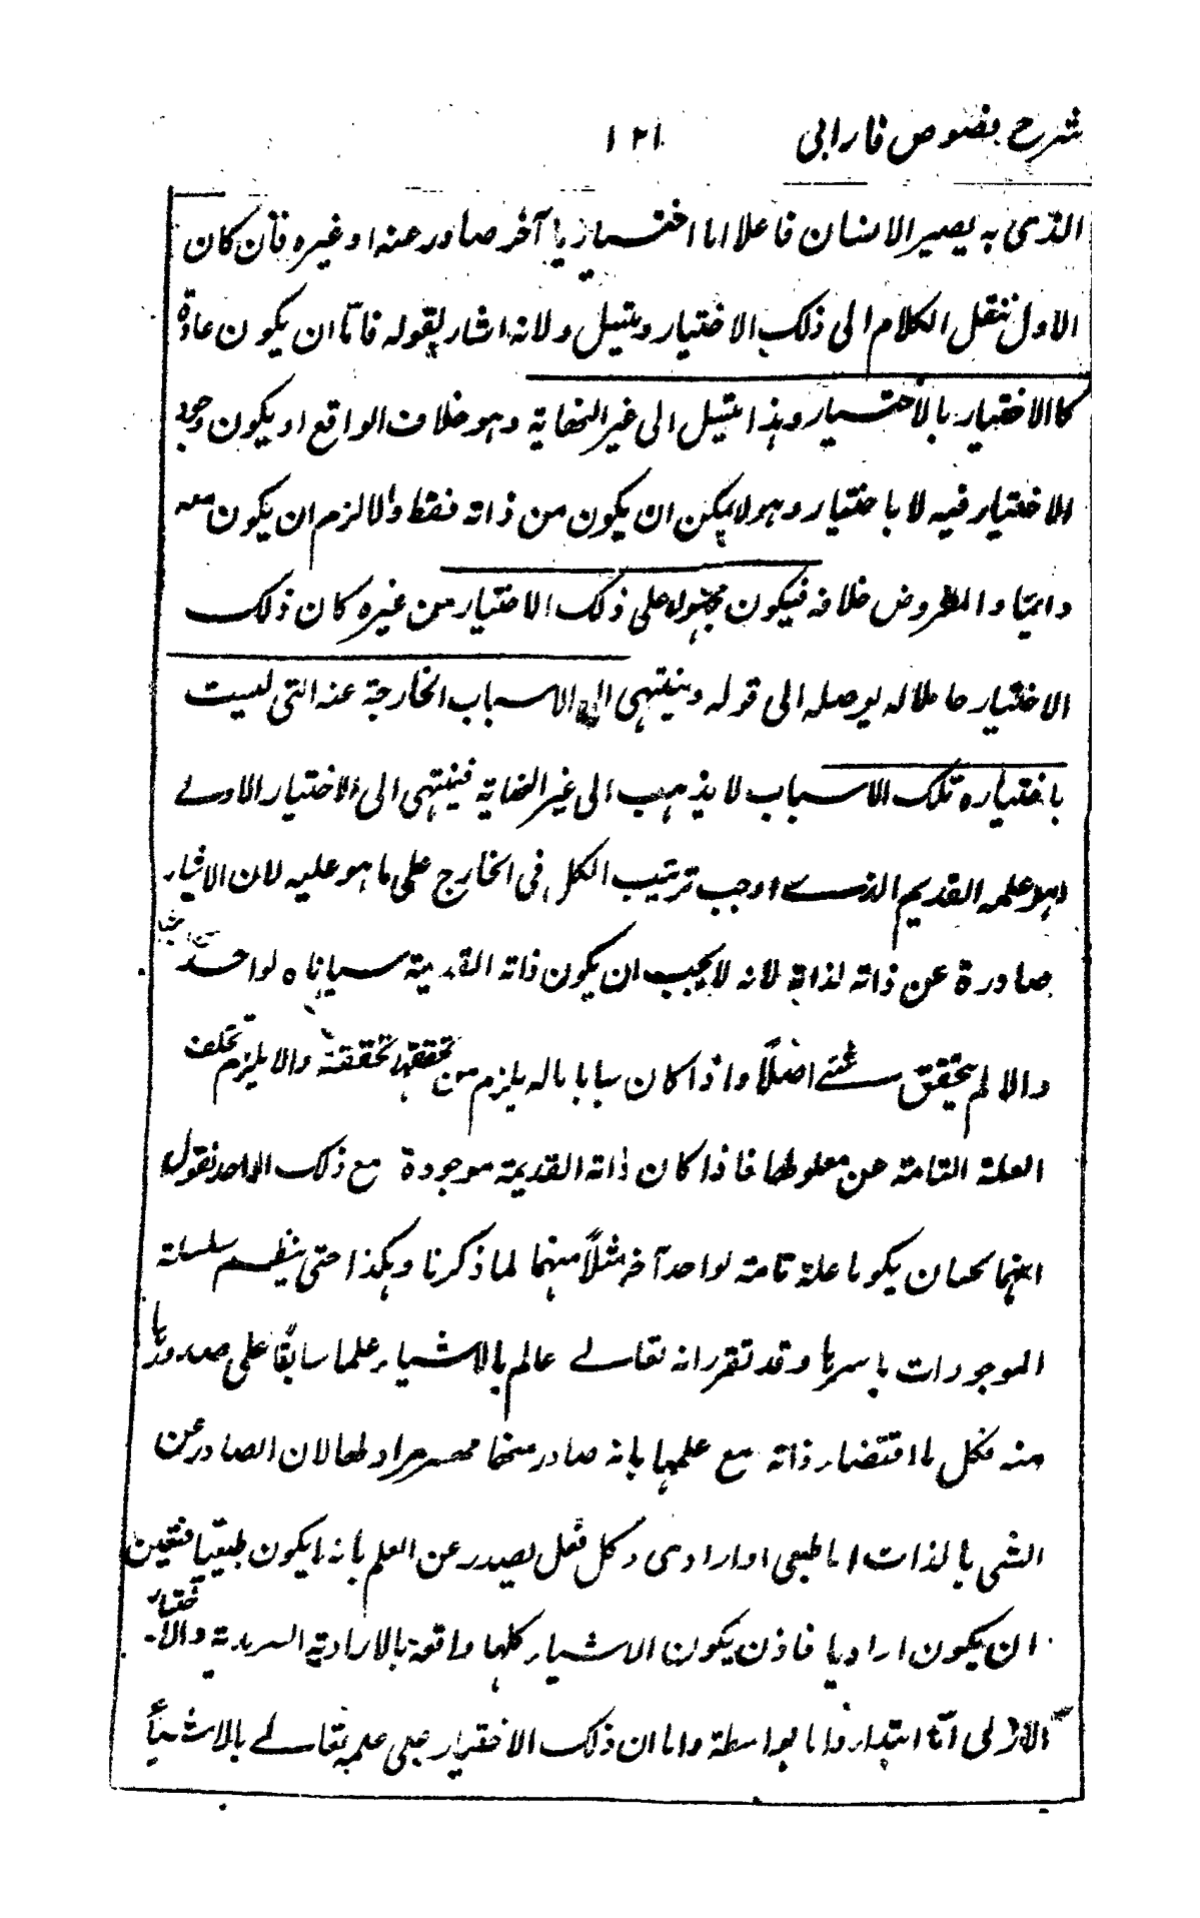 شرح فصوص فارابی ١٢١
الذی به یصیر الانسان فاعلا اما اختیار یا آخر صادر عنه او غیره فان کان
الاول ننقل الکلام الی ذلک الاختیار ویتسل ولانه اشار بقوله فاما ان یکون عادة
کالاختیار بالاختیار وهذا یتسل الی غیر النهایة وهو خلاف الواقع او یکون وجود
الاختیار فیه لا باختیار وهو لا یمکن ان یکون من ذاته فقط والا لزم ان یکون معه
دائما والمفروض خلافه فیکون مجبولا علی ذلک الاختیار من غیره کان ذلک
الاختیار حاملا له یوصله الی قوله وینتهی الی الاسباب الخارجة عنه التی لیست
باختیاره تلک الاسباب لا یذهب الی غیر النهایة فینتهی الی الاختیار الاولے
وهو علمه القدیم الذے اوجب ترتیب الکل فی الخارج علی ما هو علیه لان الاشیاء
صادرة عن ذاته لذاته لانه لا یجب ان یکون ذاته القدیمة سببا تاما لواحد
والا لم یتحقق شئے اصلًا واذا کان سببا تاما له یلزم من تحققها تحققه والا یلزم تخلف
العلة التامة عن معلولها فاذا کان ذاته القدیمة موجودة مع ذلک الواحد نقول
انهما یکونا علة تامة لواحد آخر مثلًا منهما لما ذکرنا وهکذا حتی ینتظم سلسلة
الموجودات باسرها وقد تقرر انه تعالے عالم بالاشیاء علما سابقًا علی صدورها
منه فکل ما اقتضاء ذاته مع علمها بانه صادر منها فهو مراد لها لان الصادر عن
الشی بالذات اما طبعی او ارادی وکل فعل یصدر عن العلم بانه لا یکون طبعیًا فتعین
ان یکون ارادیا فاذن یکون الاشیاء کلها واقعة بالارادة السرمدیة والاختیار
الازلی اما ابتداء واما بواسطة واما ان ذلک الاختیار علی علمه تعالے بالاشیاء